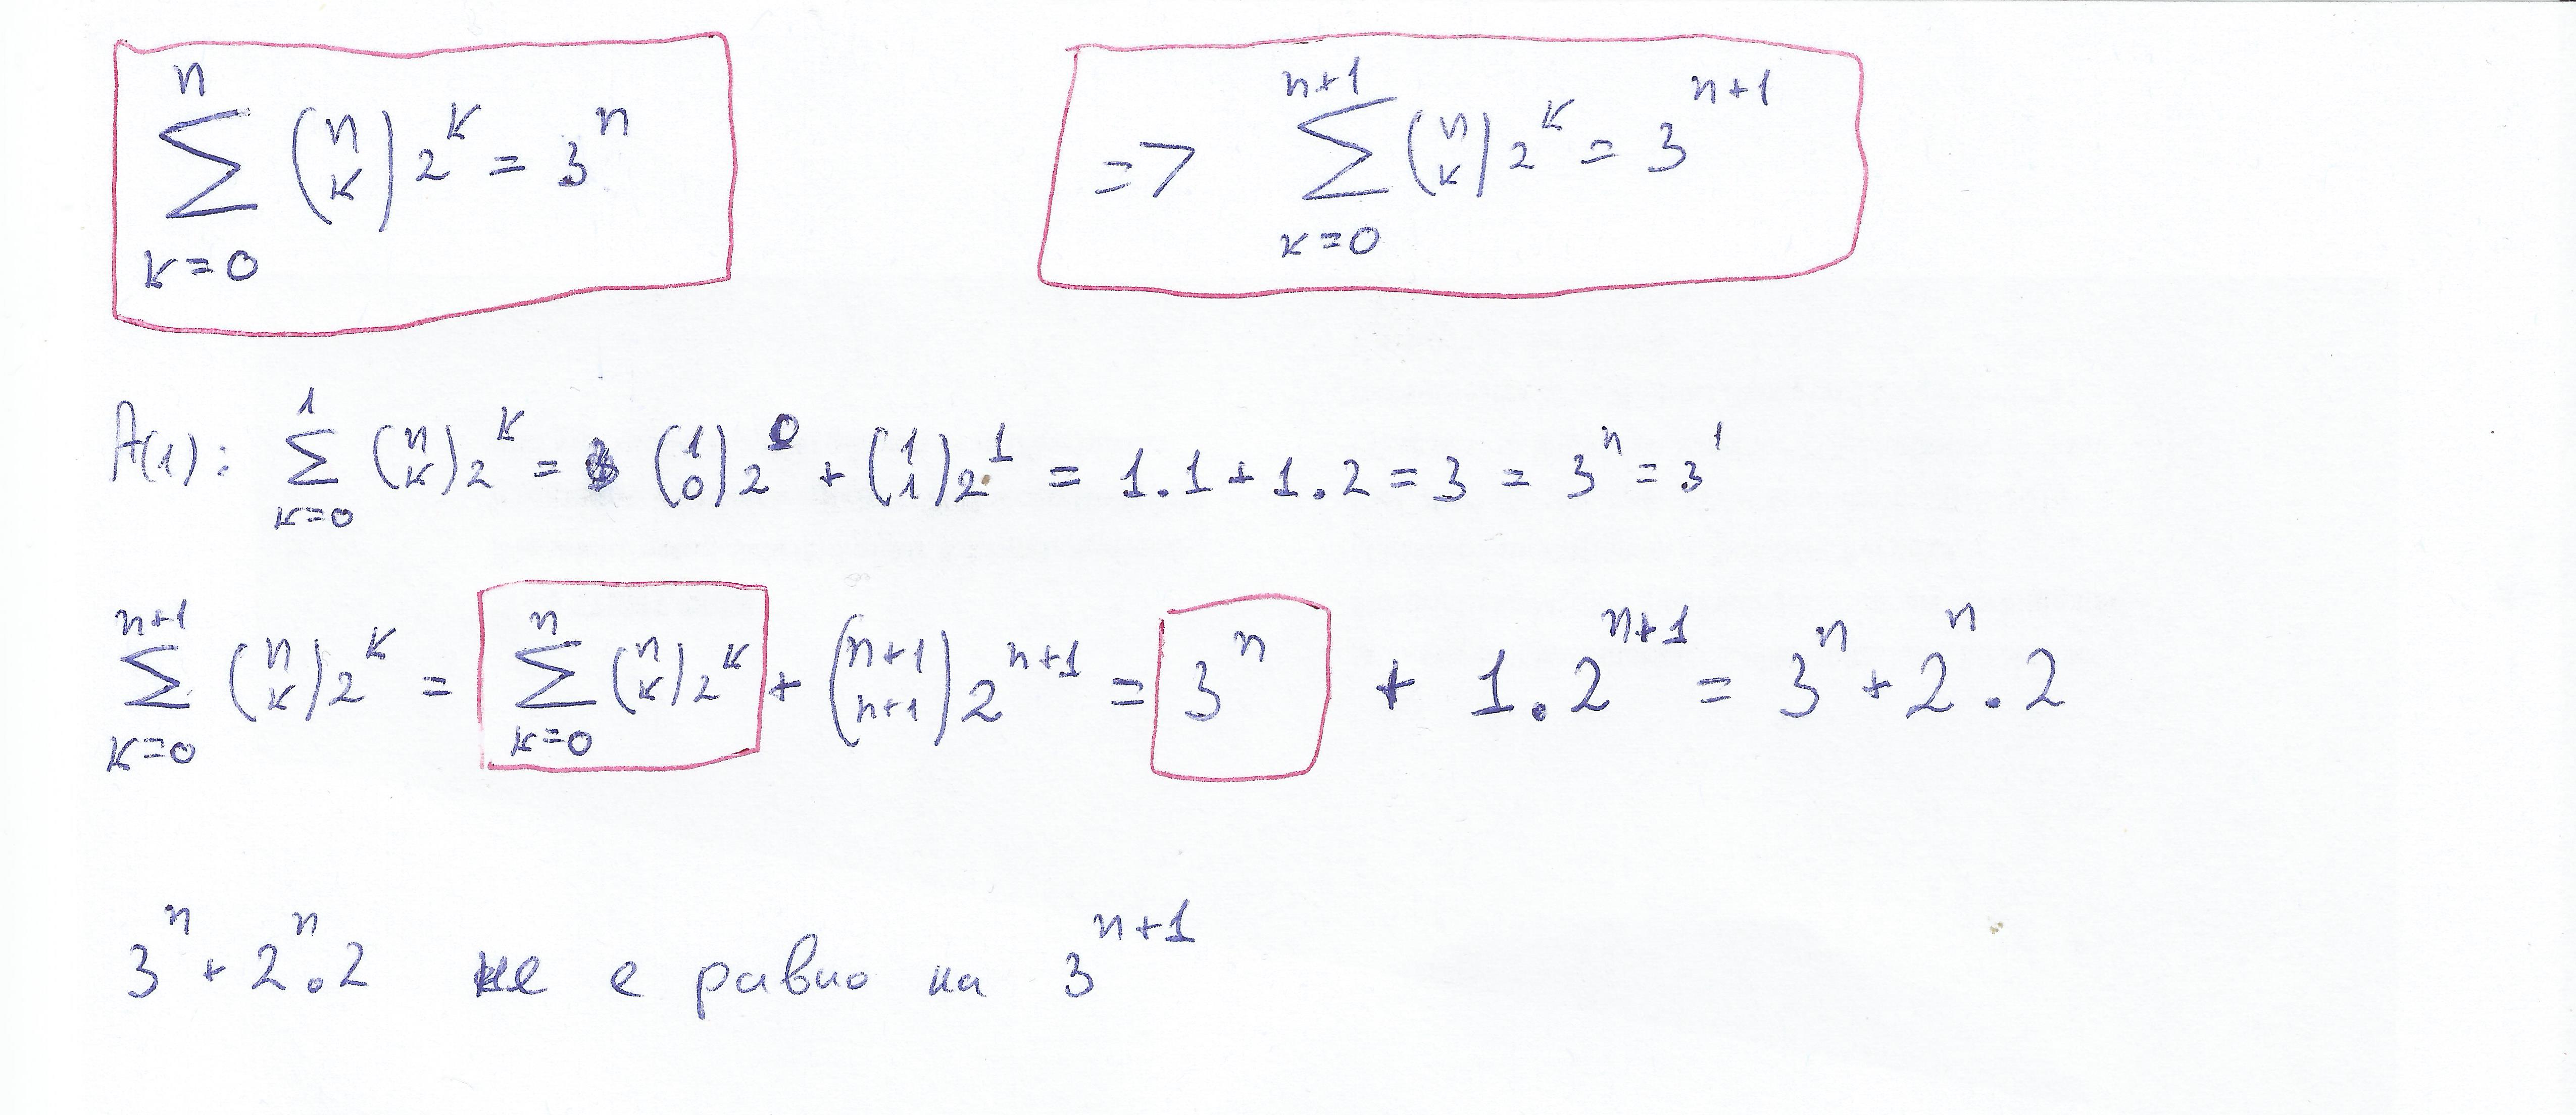 $\sum_{k=0}^{n} \binom{n}{k} 2^k = 3^n$
$\Rightarrow \sum_{k=0}^{n+1} \binom{n}{k} 2^k = 3^{n+1}$
A(1): $\sum_{k=0}^{1} \binom{n}{k} 2^k = \binom{1}{0} 2^0 + \binom{1}{1} 2^1 = 1.1 + 1.2 = 3 = 3^n = 3^1$
$\sum_{k=0}^{n+1} \binom{n}{k} 2^k = \sum_{k=0}^{n} \binom{n}{k} 2^k + \binom{n+1}{n+1} 2^{n+1} = 3^n + 1.2^{n+1} = 3^n + 2^n.2$
$3^n + 2^n.2$ не е равно на $3^{n+1}$